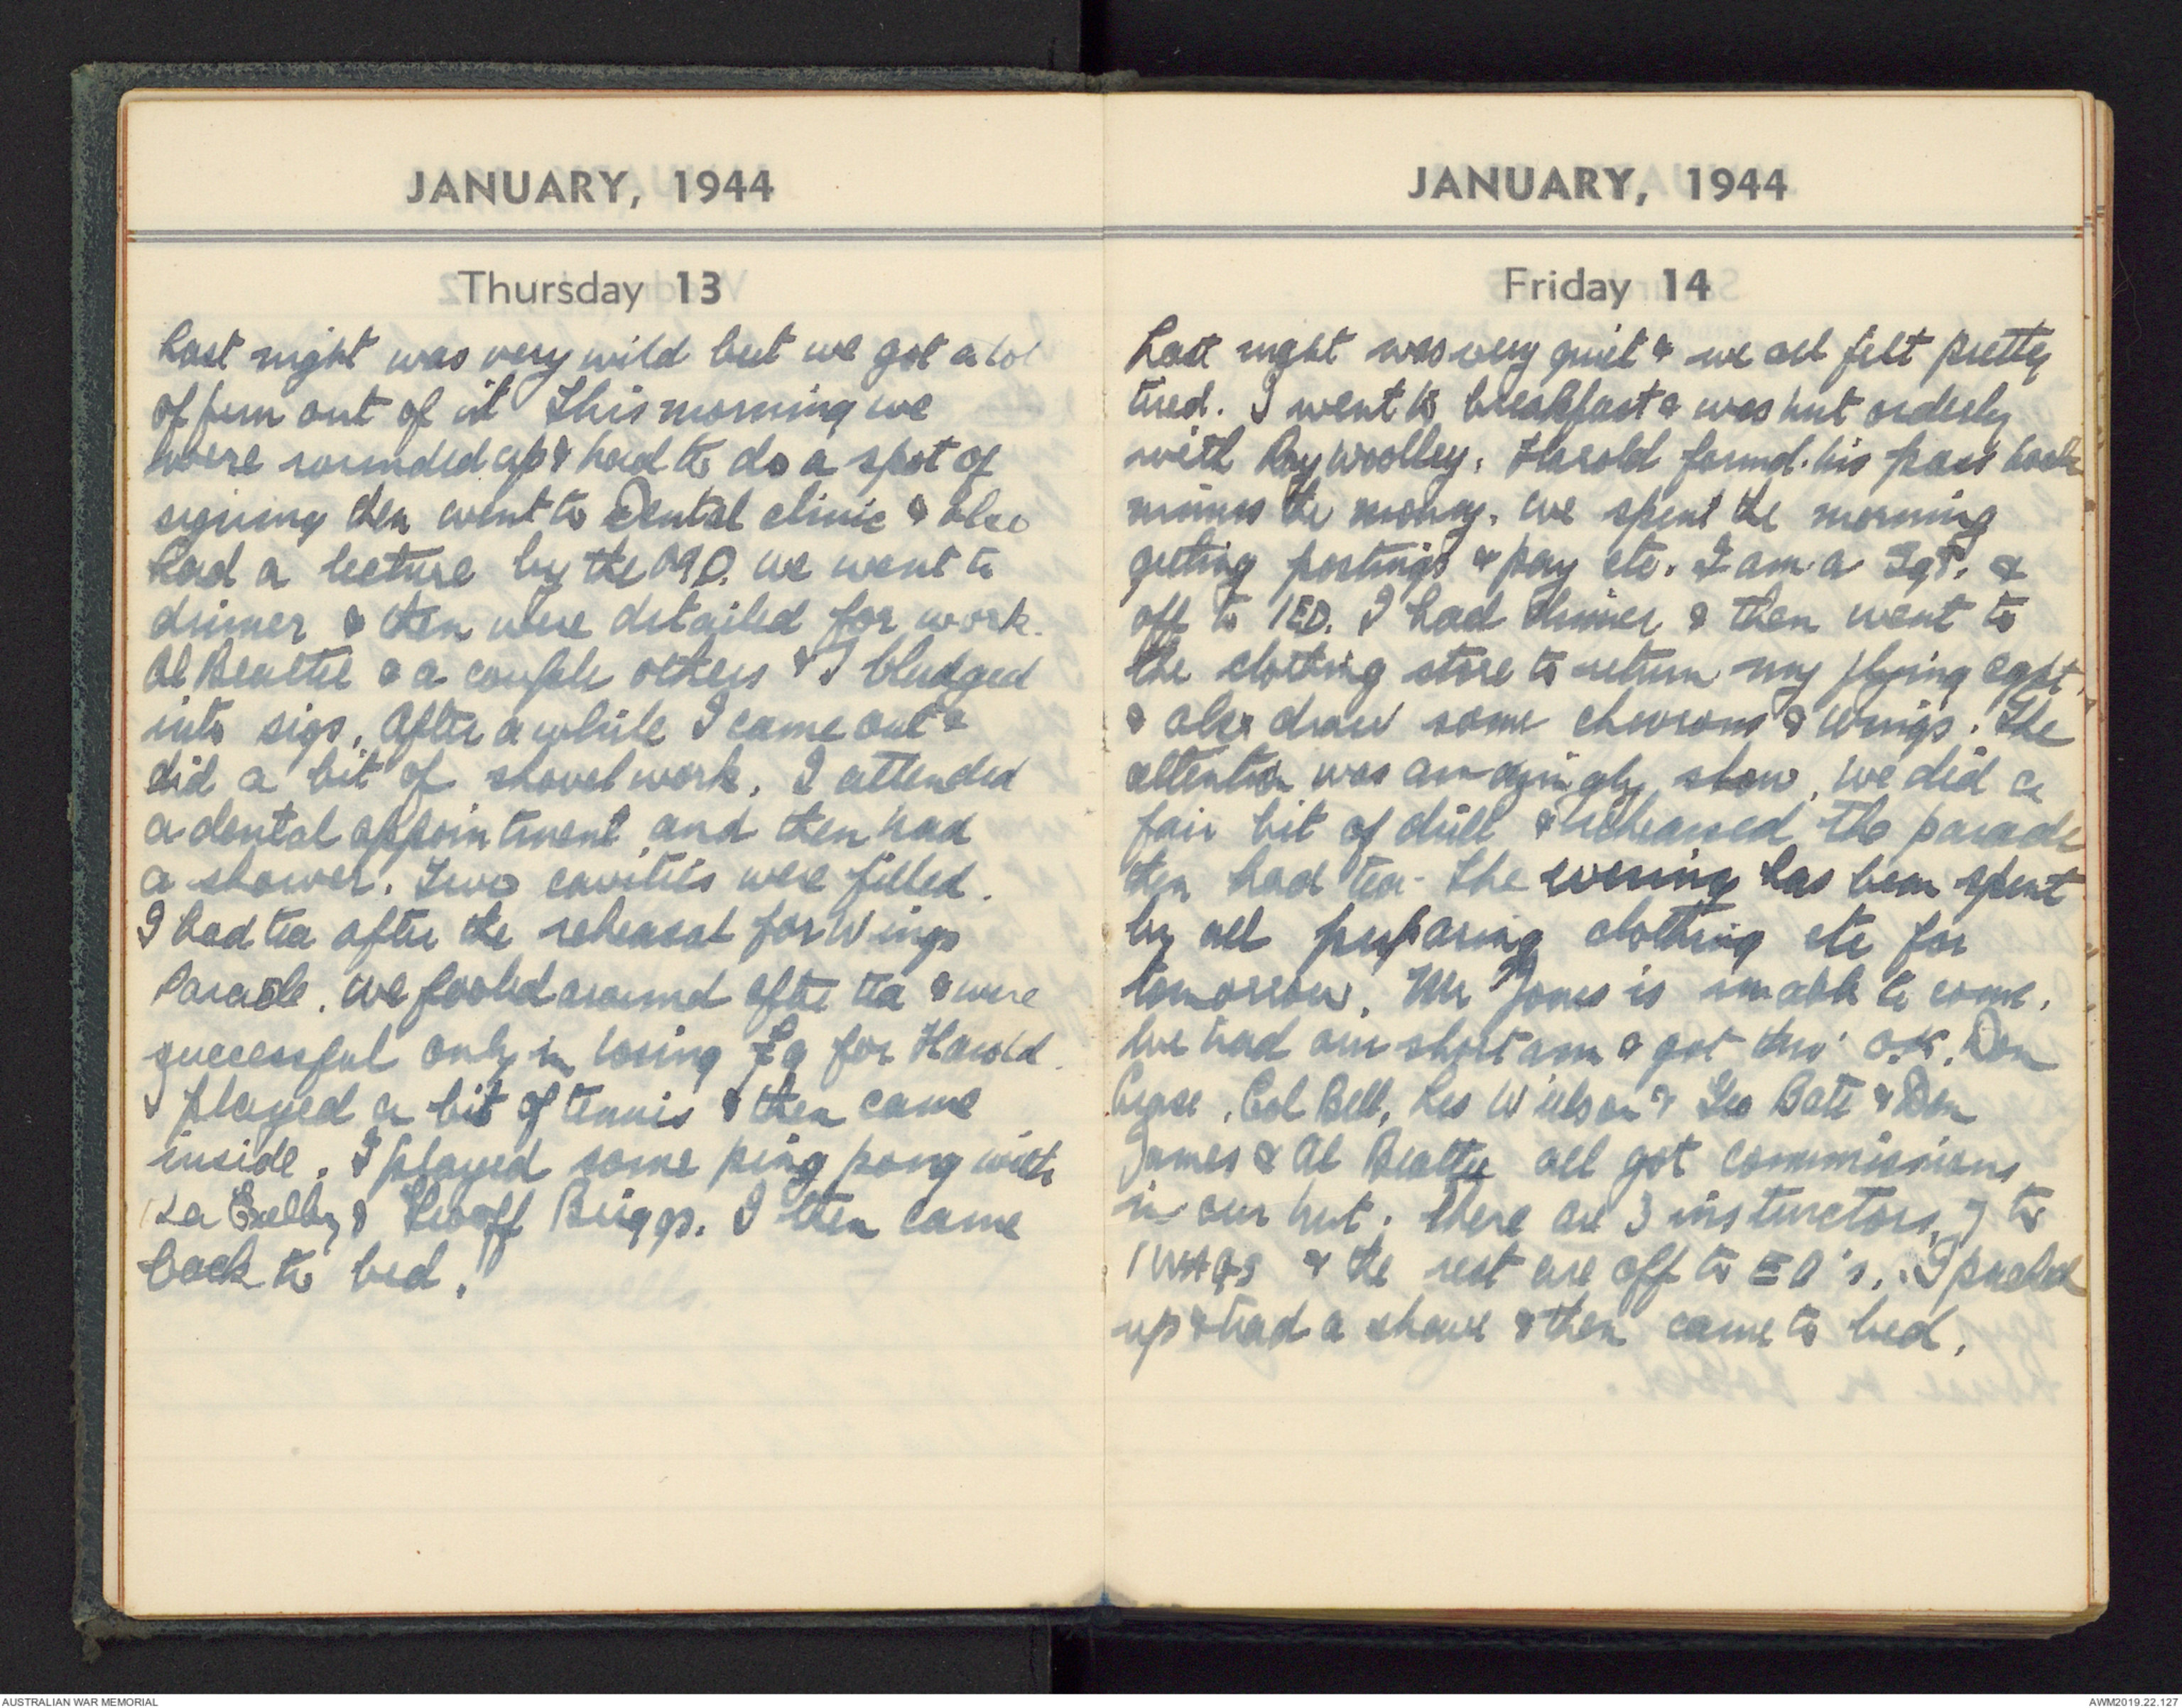 JANUARY, 1944
Thursday 13
Last night was very wild but we got a lot
of fun out of it This morning we
were rounded up & had to do a spot of
signing then went to Dental clinic & also
had a lecture by the we went to
dinner & then were detailed for work.
Al Beattie & a couple others & I bludged
into sigs, After a while I came out &
did a bit of shovel work. I attended
a dental appointment and then had
a shower. Two cavities were filled.
I had tea after the rehearsal for Wings
Parade. We fooled around after tea & were
successful only in losing £9 for Harold.
I played a bit of tennis & then came
inside. I played some ping pong with
& Geoff Briggs. I then came
back to bed.
JANUARY, 1944
Friday 14
Last night was very quiet & we all felt pretty
tired. I went to breakfast & was hut orderly
with Ray Woolley. Harold found his pass book
minus the money. We spent the morning
getting postings & pay etc. I am a Sgt. &
off to 1ED. I had dinner & then went to
the clothing store to return my flying eqpt,
& also draw some chevrons & wings. The
attention was amazingly slow. We did a
fair bit of drill & rehearsed the parade
then had tea. The evening has been spent
by all preparing clothing etc for
tomorrow. Mr Jones is unable to come.
We had our short arm & got thro' O.K. Don
Col Bell, Les Wilson & Geo Bate & Don
James & Al Beattie all got commissions
in our hut. There are 3 instructors, 7 to
1 WAGS & the rest are off to ED's. I packed
up & had a shave & then came to bed.
AUSTRALIAN WAR MEMORIAL
AWM2019.22.127